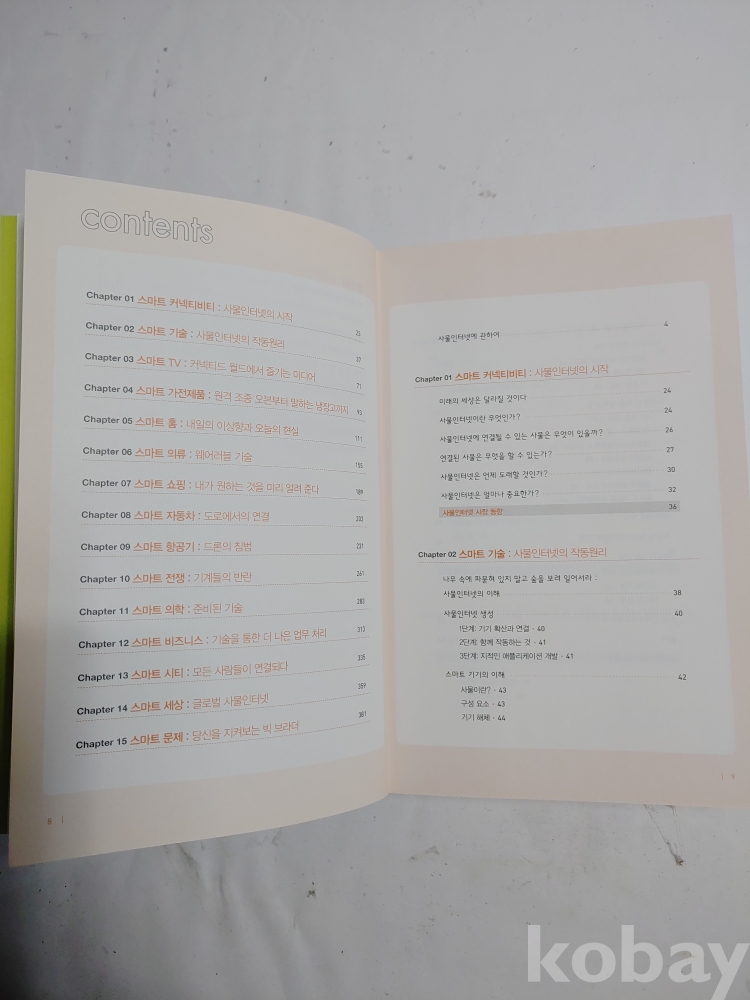 contents
Chapter 01 스마트 커넥티비티 : 사물인터넷의 시작 23
Chapter 02 스마트 기술 : 사물인터넷의 작동원리 37
Chapter 03 스마트 TV : 커넥티드 월드에서 즐기는 미디어 71
Chapter 04 스마트 가전제품 : 원격 조종 오븐부터 말하는 냉장고까지 93
Chapter 05 스마트 홈 : 내일의 이상향과 오늘의 현실 111
Chapter 06 스마트 의류 : 웨어러블 기술 155
Chapter 07 스마트 쇼핑 : 내가 원하는 것을 미리 알려 준다 189
Chapter 08 스마트 자동차 : 도로에서의 연결 203
Chapter 09 스마트 항공기 : 드론의 침범 231
Chapter 10 스마트 전쟁 : 기계들의 반란 261
Chapter 11 스마트 의학 : 준비된 기술 283
Chapter 12 스마트 비즈니스 : 기술을 통한 더 나은 업무 처리 313
Chapter 13 스마트 시티 : 모든 사람들이 연결되다 335
Chapter 14 스마트 세상 : 글로벌 사물인터넷 359
Chapter 15 스마트 문제 : 당신을 지켜보는 빅 브라더 381
8
사물인터넷에 관하여 4
Chapter 01 스마트 커넥티비티 : 사물인터넷의 시작
미래의 세상은 달라질 것이다 24
사물인터넷이란 무엇인가? 24
사물인터넷에 연결될 수 있는 사물은 무엇이 있을까? 26
연결된 사물은 무엇을 할 수 있는가? 27
사물인터넷은 언제 도래할 것인가? 30
사물인터넷은 얼마나 중요한가? 32
사물인터넷 시장 동향 36
Chapter 02 스마트 기술 : 사물인터넷의 작동원리
나무 속에 파묻혀 있지 말고 숲을 보려 일어서라 :
사물인터넷의 이해 38
사물인터넷 생성 40
1단계: 기기 확산과 연결 · 40
2단계: 함께 작동하는 것 · 41
3단계: 지적인 애플리케이션 개발 · 41
스마트 기기의 이해 42
사물이란? · 43
구성 요소 · 43
기기 해체 · 44
9
kobay